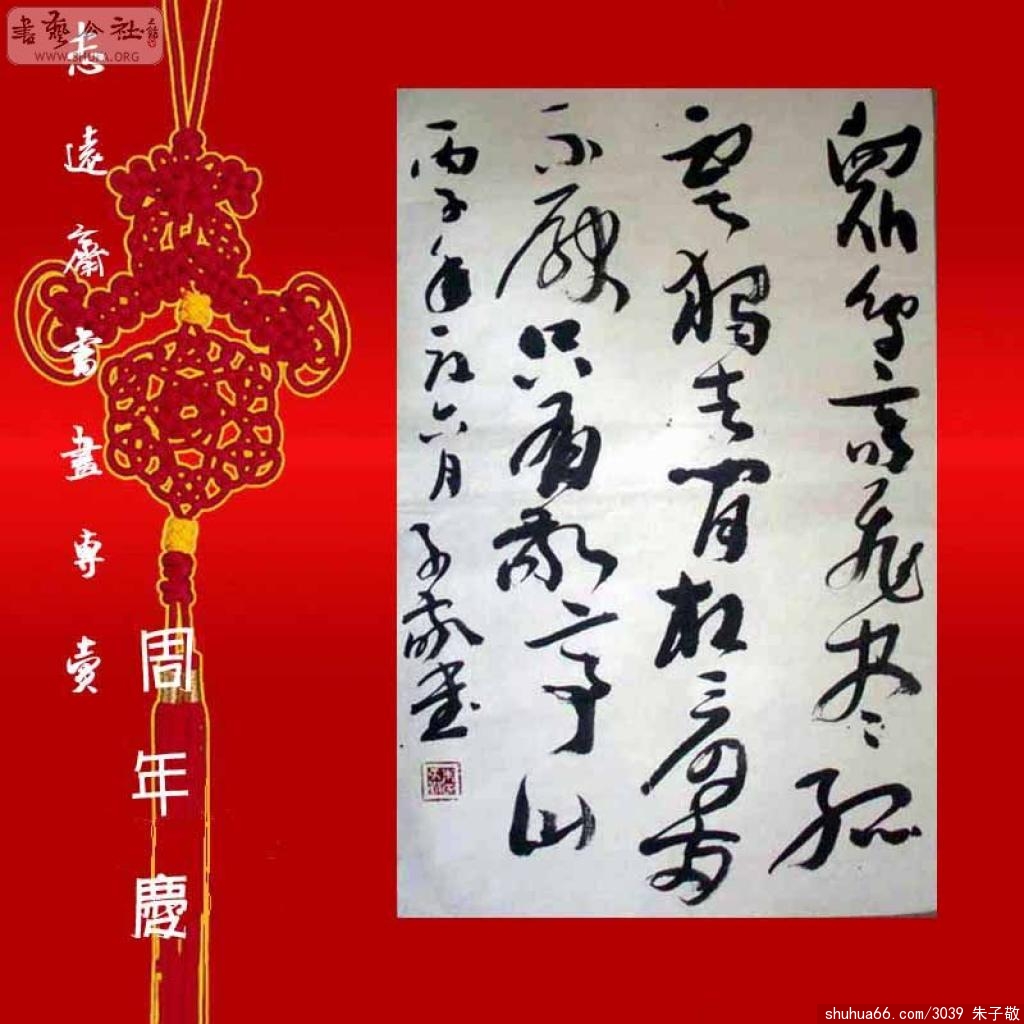 書藝公社
WWW.SHUFA.ORG
志遠齋書畫專賣
周年慶
眾鳥高飛尽孤
雲獨去閒相看兩
不厭只有敬亭山
丙子年六月子敬書
shuhua66.com/3039 朱子敬